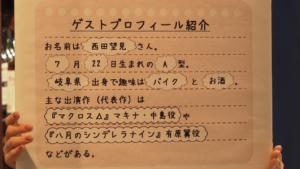 ゲストプロフィール紹介
お名前は 西田望見 さん。
7 月 22 日生まれの A 型。
岐阜県 出身で趣味は バイク と お酒。
主な出演作(代表作)は
『マクロスΔ』マキナ・中島役 や
『八月のシンデレラナイン』有原翼役
などがある。